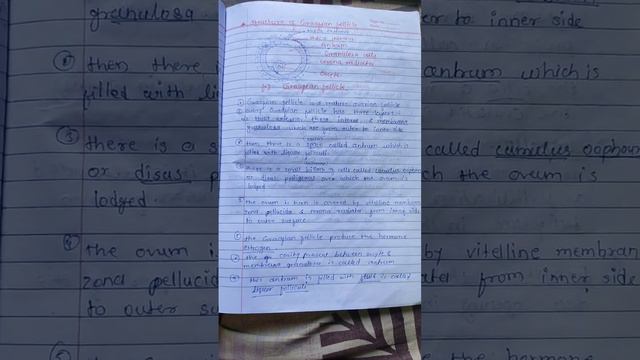 Structure of Graafian follicle
theca externa
theca interna
Antrum
Granulosa cells
corona radiata
Oocyte
Graafian follicle
Graafian follicle is a mature ovarian follicle
Every Graafian follicle has three layers
theca externa, theca interna & membrana
granulosa which are from outer to inner side
then there is a space called antrum which is
filled with liquor folliculi
there is a small hillock of cells called cumulus oophorus
or discus proligerus over which the ovum is
lodged
the ovum in turn is covered by vitelline membrane
zona pellucida & corona radiata from inner side
to outer surface
the Graafian follicle produce the hormone
estrogen
the cavity present between oocyte &
membrana granulosa is called antrum
this antrum is filled with fluid is called
liquor folliculi
granulosa
er to inner side
then there i
antrum which is
filled with li
there is a s
called cumulus oophoru
or discus p
ch the ovum is
lodged
the ovum i
by vitelline membran
zona pelluci
ata from inner side
to outer su